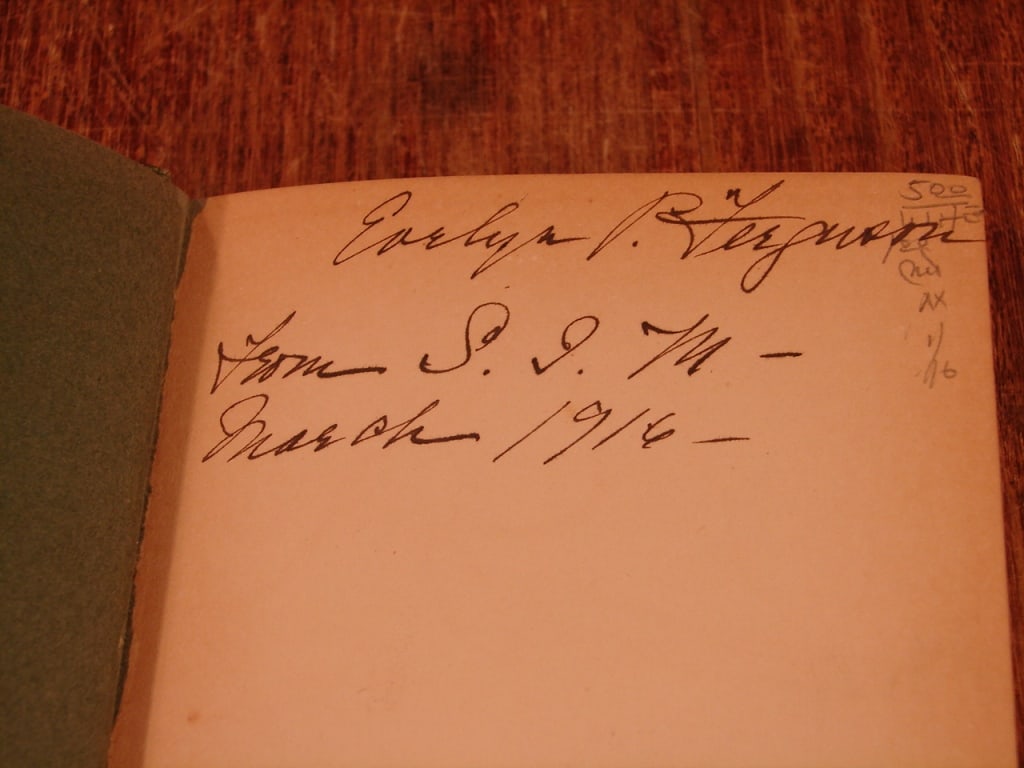 Evelyn P. Ferguson
From S. I. M –
March 1916 –
500